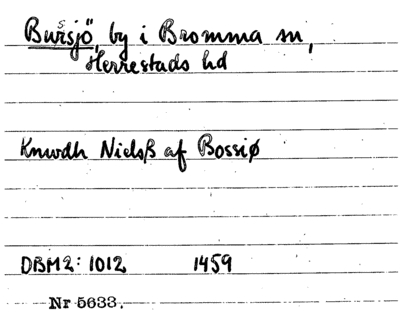 Bursjö, by i Bromma sn,
Herrestads hd
Knwdh Nielsß af Bossiø
DBM2: 1012 1459
Nr 5633.